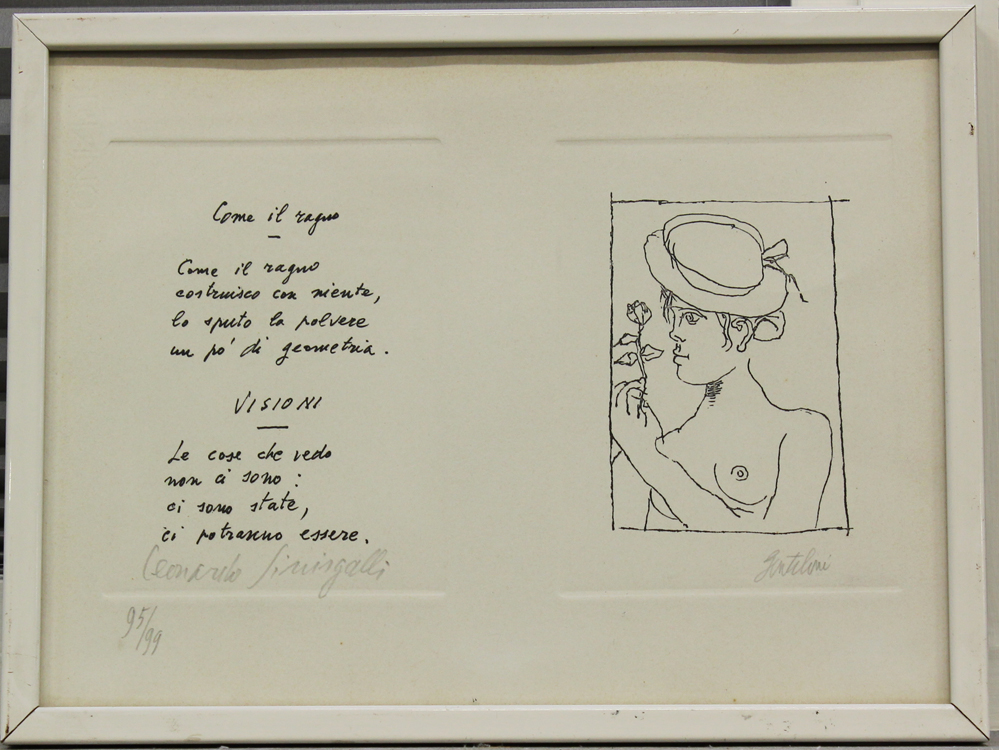 Come il ragno
Come il ragno
costruisco con niente,
lo sputo la polvere
un po' di geometria.
VISIONI
Le cose che vedo
non ci sono:
ci sono state,
ci potranno essere.
Leonardo Sinisgalli
95/99
Gentilini